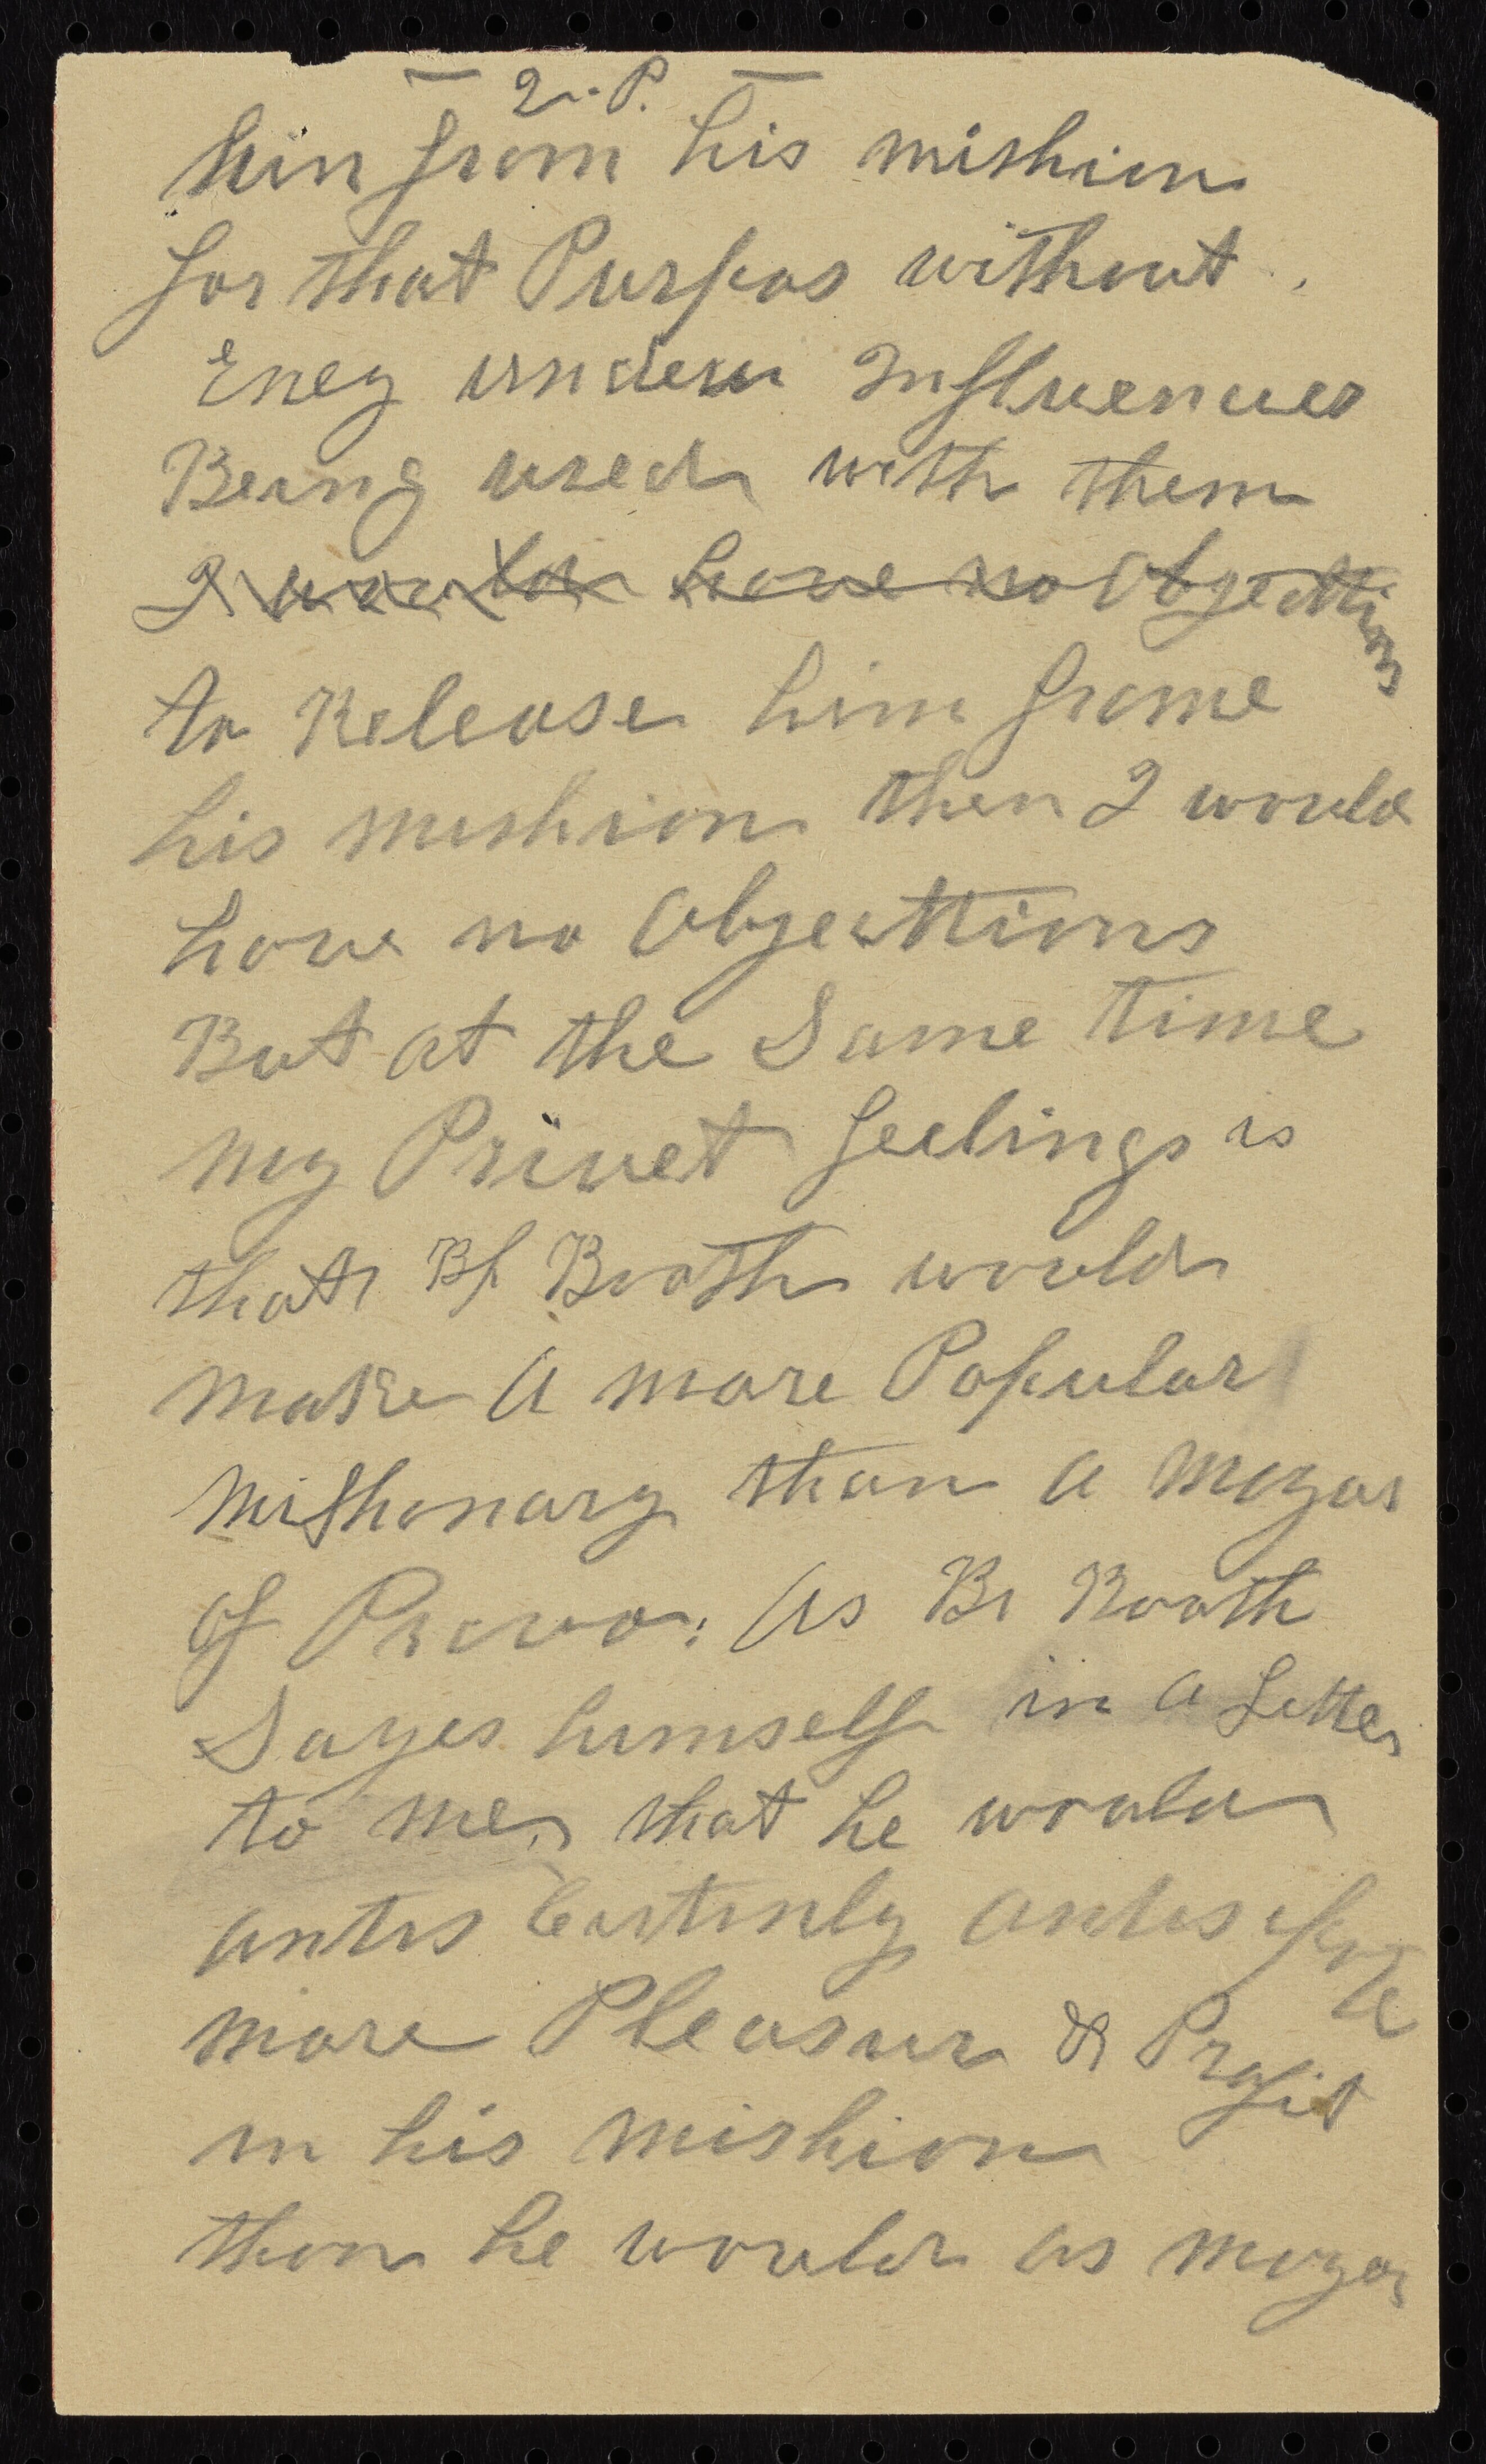 — 2.P. —
him from his mishion
for that Purpos without
Eney undew Influences
Being used with them
I would have no Objecttions
to Release him frome
his mishion then I would
have no Objecttions
But at the Same time
my Privet feelings is
that Br Booth would
make A more Popular
mishonary than A mayor
of Provo: As Br Booth
Sayes himself in A Letter
to me, that he would
antis Certinly antisipate
more Pleasur & Profit
in his mishion
than he would as mayor